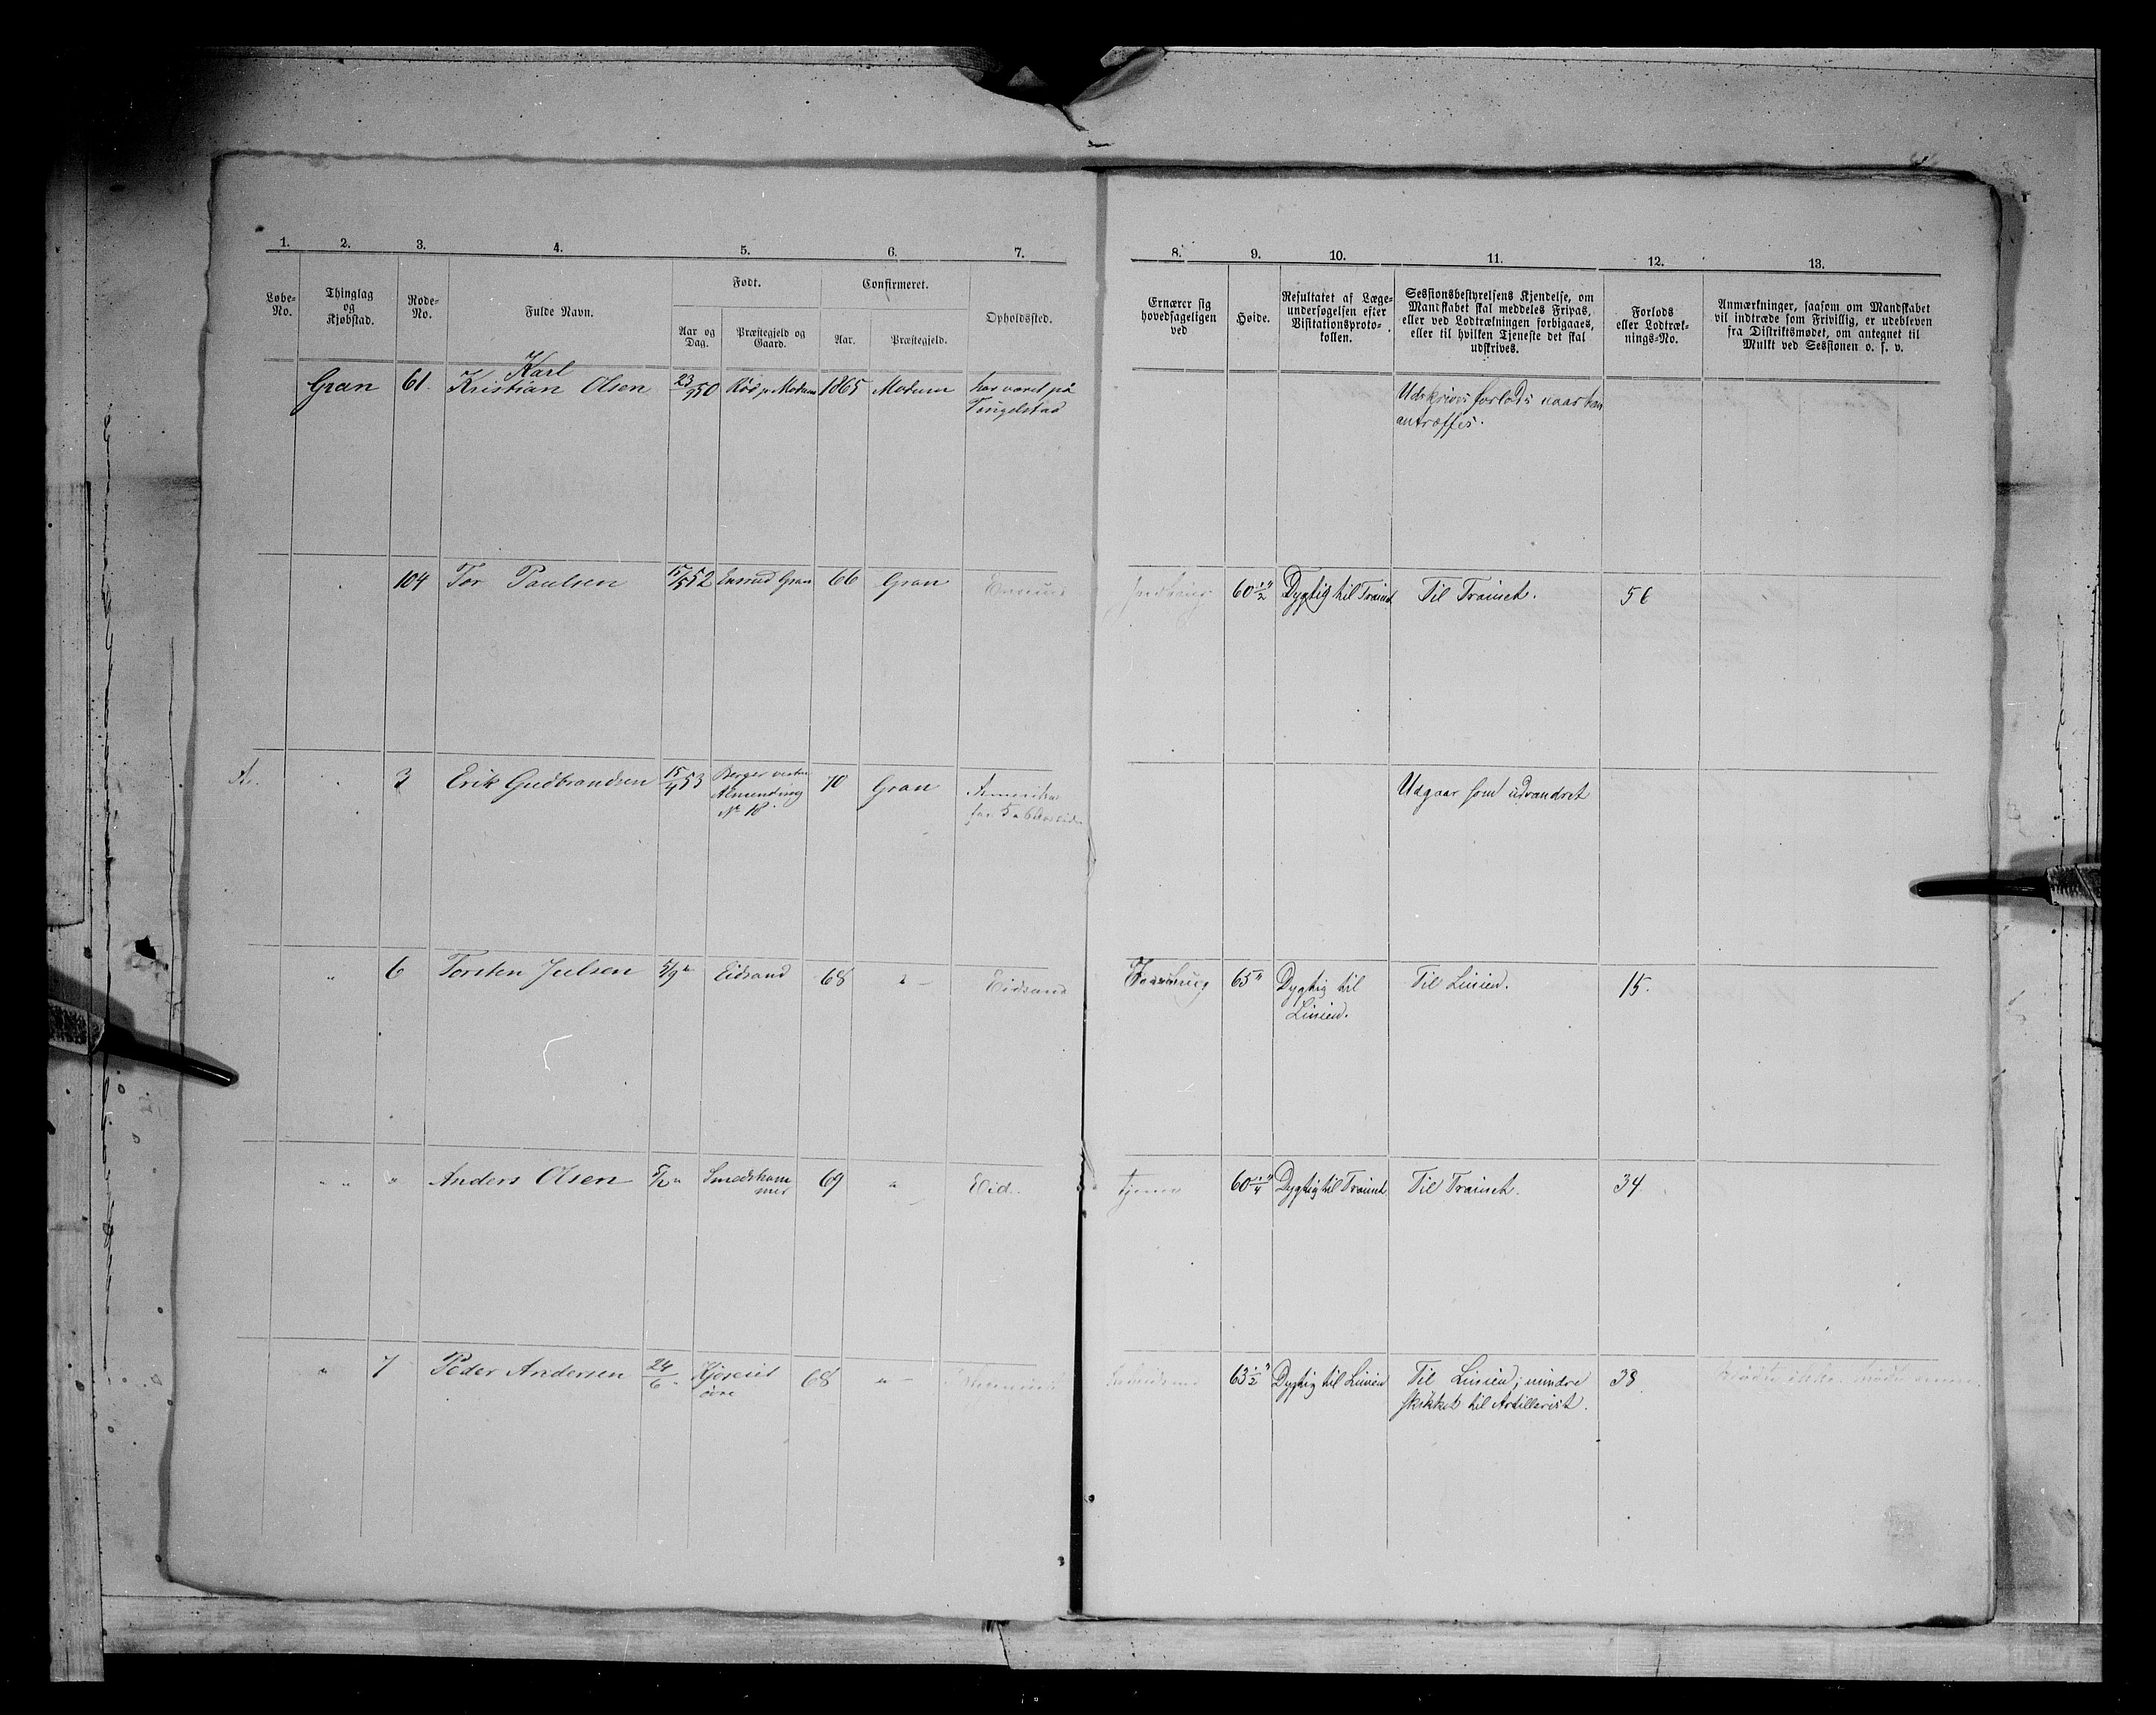 1. 2. 3. 4. 5. 6. 7.
Løbe-No. Thinglag og Kjøbstad. Rode-No. Fulde Navn. Født. Confirmeret. Opholdssted.
Aar og Dag. Præstegjeld og Gaard. Aar. Præstegjeld.
8. 9. 10. 11. 12. 13.
Ernærer sig hovedsageligen ved
Høide.
Resultatet af Læge-
undersøgelsen efter
Visitationsproto-
kollen.
Sessionsbestyrelsens Kjendelse, om
Mandskabet skal meddeles Fripas,
eller ved Lodtrækningen forbigaaes,
eller til hvilken Tjeneste det skal
udskrives.
Forlods
eller Lodtræk-
nings-No.
Anmærkninger, saasom om Mandskabet
vil indtræde som Frivillig, er udebleven
fra Distriktsmødet, om antegnet til
Mulkt ved Sessionen o. s. v.
Karl
Gran 61. Kristian Olsen 23/9 50 Modum 1865 Modum har været på
Tingelstad
Udskrives forlods naar han
antræffes.
104 Tor Paulsen 52 Ensrud Gran 66 Gran
60 1/2" Dygtig til Trainet Til Trainet. 56
3 Erik Gudbrandsen 15/4 53 Berger vestre
Almending
No 18. 70 Gran Amerika
Udgaar som udvandret
" 6 Torsten Juelsen 5/9 " Eidsand 68 " Eidsand
65" Dygtig til
Linien. Til Linien. 15.
" " " Anders Olsen " Smedsham
mer 69 " Eid.
tjener 60 1/4" Dygtig til Trainet Til Trainet. 34
" 7 Peder Andersen 24/6 " 68 "
63 1/2" Dygtig til Linien Til Linien; mindre
skikket til Artillerist. 38